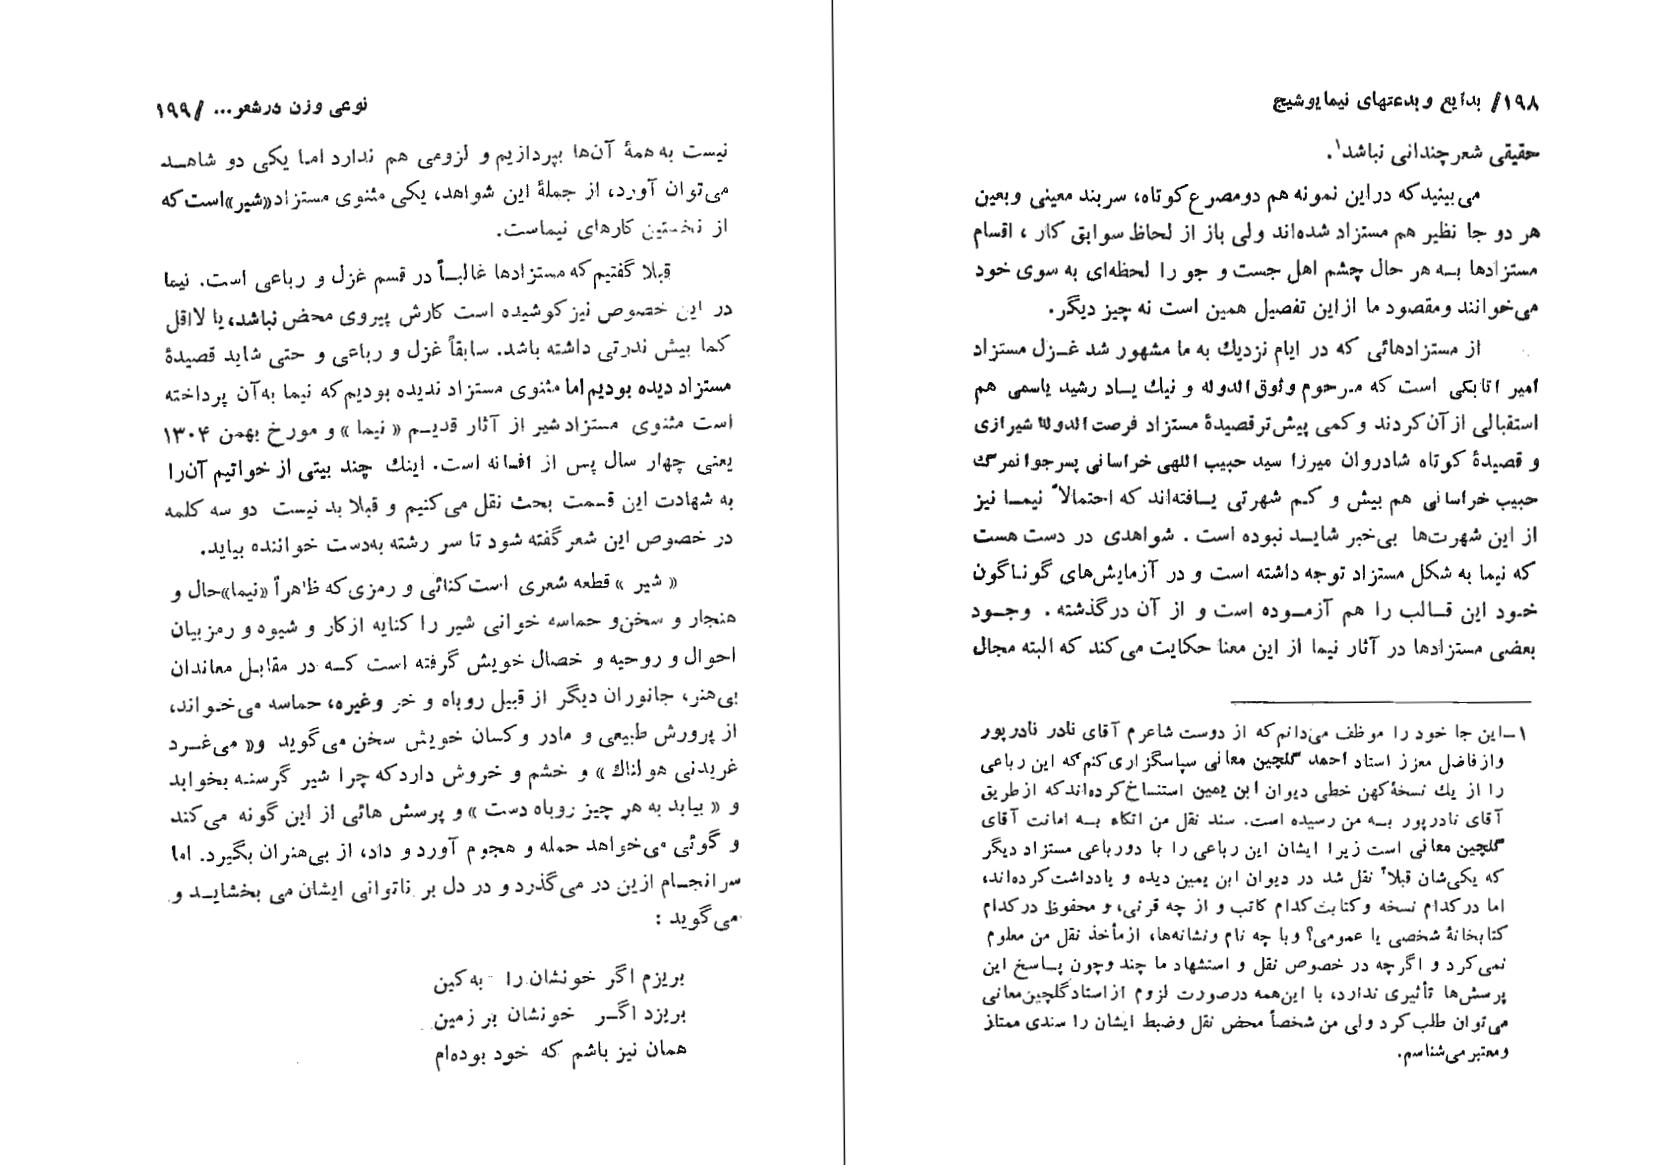 ۱۹۸// بدایع و بدعتهای نیمایوشیج
حقیقی شعر چندانی نباشد۱.
می‌بینید که در این نمونه هم دو مصرع کوتاه، سربند معینی و بعین
هر دو جا نظیر هم مستزاد شده‌اند ولی باز از لحاظ سوابق کار ، اقسام
مستزادها بــه هر حال چشم اهل جست و جو را لحظه‌ای به سوی خود
می‌خوانند ومقصود ما از این تفصیل همین است نه چیز دیگر.
از مستزادهائی که در ایام نزدیك به ما مشهور شد غــزل مستزاد
امیر اتابکی است که مرحوم وثوق‌الدوله و نیك یــاد رشید یاسمی هم
استقبالی از آن کردند و کمی پیش‌تر قصیدهٔ مستزاد فرصت‌الدولهٔ شیرازی
و قصیدهٔ کوتاه شادروان میرزا سید حبیب اللهی خراسانی پسر جوانمرگ
حبیب خراسانی هم بیش و کــم شهرتی یــافته‌اند که احتمالاً نیمــا نیز
از این شهرت‌ها بی‌خبر شایــد نبوده است . شواهدی در دست هست
که نیما به شکل مستزاد توجه داشته است و در آزمایش‌های گونــاگون
خــود این قــالب را هم آزمــوده است و از آن درگذشته . وجــود
بعضی مستزادها در آثار نیما از این معنا حکایت می‌کند که البته مجال
۱ــ این جا خود را موظف می‌دانم که از دوست شاعرم آقای نادر نادرپور
واز فاضل معزز استاد احمد گلچین معانی سپاسگزاری کنم که این رباعی
را از یك نسخهٔ کهن خطی دیوان ابن یمین استنساخ کرده‌اند که از طریق
آقای نادرپور بــه من رسیده است. سند نقل من اتکاء بــه امانت آقای
گلچین معانی است زیرا ایشان این رباعی را با دورباعی مستزاد دیگر
که یکی‌شان قبلاً نقل شد در دیوان ابن یمین دیده و یادداشت کرده‌اند،
اما در کدام نسخه و کتابت کدام کاتب و از چه قرنی، و محفوظ در کدام
کتابخانهٔ شخصی یا عمومی؟ وبا چه نام ونشانه‌ها، از مأخذ نقل من معلوم
نمی‌کرد و اگرچه در خصوص نقل و استشهاد ما چند وچون پــاسخ این
پرسش‌ها تأثیری ندارد، با این‌همه درصورت لزوم از استاد گلچین‌معانی
می‌توان طلب کرد ولی من شخصاً محض نقل وضبط ایشان را سندی ممتاز
ومعتبر می‌شناسم.
نوعی وزن درشعر... //۱۹۹
نیست به همهٔ آن‌ها بپردازیم و لزومی هم ندارد اما یکی دو شاهــد
می‌توان آورد، از جملهٔ این شواهد، یکی مثنوی مستزاد «شیر» است که
از نخستین کارهای نیماست.
قبلا گفتیم که مستزادها غالبــاً در قسم غزل و رباعی است. نیما
در این خصوص نیز کوشیده است کارش پیروی محض نباشد، یا لااقل
کما بیش ندرتی داشته باشد. سابقاً غزل و رباعی و حتی شاید قصیدهٔ
مستزاد دیده بودیم اما مثنوی مستزاد ندیده بودیم که نیما به‌آن پرداخته
است مثنوی مستزاد شیر از آثار قدیــم « نیما » و مورخ بهمن ۱۳۰۴
یعنی چهار سال پس از افسانه است. اینك چند بیتی از خواتیم آن‌را
به شهادت این قسمت بحث نقل می‌کنیم و قبلا بد نیست دو سه کلمه
در خصوص این شعر گفته شود تا سر رشته به‌دست خواننده بیاید.
« شیر » قطعه شعری است کنائی و رمزی که ظاهراً «نیما» حال و
هنجار و سخن‌و حماسه خوانی شیر را کنایه از کار و شیوه و رمز بیان
احوال و روحیه و خصال خویش گرفته است کــه در مقابــل معاندان
بی‌هنر، جانوران دیگر از قبیل روباه و خر وغیره، حماسه می‌خــواند،
از پرورش طبیعی و مادر و کسان خویش سخن می‌گوید و« می‌غــرد
غریدنی هولناك » و خشم و خروش دارد که چرا شیر گرسنه بخوابد
و « بیابد به هر چیز روباه دست » و پرسش هائی از این گونه می‌کند
و گوئی می‌خواهد حمله و هجوم آورد و داد، از بی‌هنران بگیرد. اما
سرانجــام ازین در می‌گذرد و در دل بر ناتوانی ایشان می بخشایــد و
می‌گوید :
بریزم اگر خونشان را به کین
بریزد اگــر خونشان بر زمین
همان نیز باشم که خود بوده‌ام